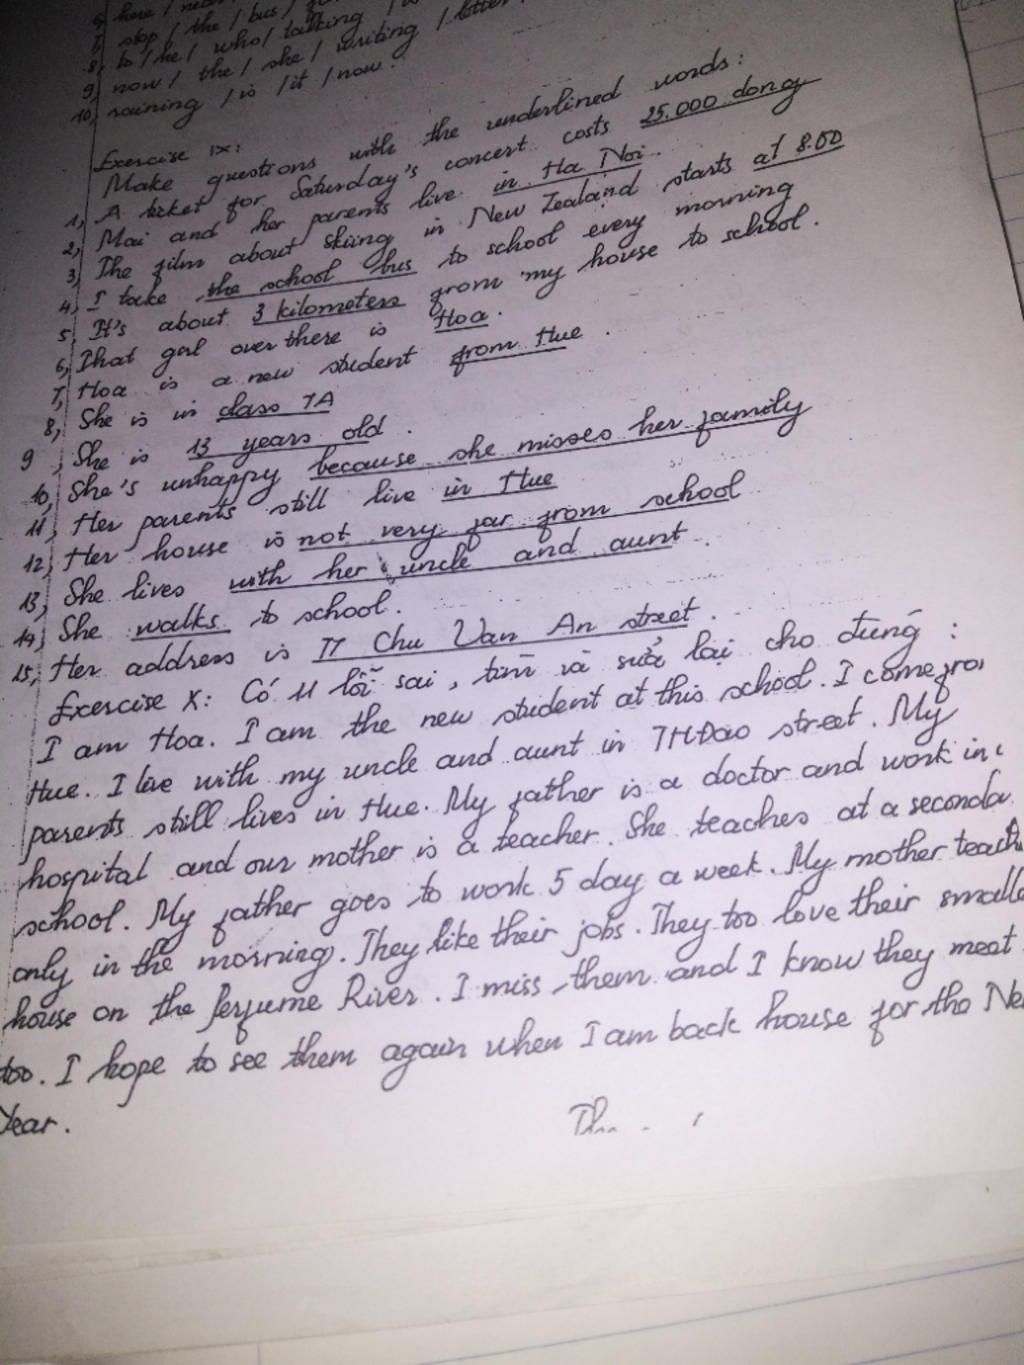 6, here /
7, stop / the / bus /
8, to / he / who / talking /
9, now / the / she / writing / letter
10, raining / is / it / now.
Exercise IX:
Make questions with the underlined words:
1, A ticket for Saturday's concert costs 25.000 dong
2, Mai and her parents live in Ha Noi.
3, The film about skiing in New Zealand starts at 8.00
4, I take the school bus to school every morning
5, It's about 3 kilometers from my house to school.
6, That girl over there is Hoa.
7, Hoa is a new student from Hue.
8, She is in class 7A
9, She is 13 years old.
10, She's unhappy because she misses her family
11, Her parents still live in Hue
12, Her house is not very far from school
13, She lives with her uncle and aunt.
14, She walks to school.
15, Her address is 77 Chu Van An street.
Exercise X: Có 11 lỗi sai, tìm và sửa lại cho đúng:
I am Hoa. I am the new student at this school. I come fro
Hue. I live with my uncle and aunt in THĐao street. My
parents still lives in Hue. My father is a doctor and work in
hospital and our mother is a teacher. She teaches at a seconda
school. My father goes to work 5 day a week. My mother teach
only in the morning. They like their jobs. They too love their small
house on the Perfume River. I miss them and I know they meet
too. I hope to see them again when I am back house for the Ne
Year.